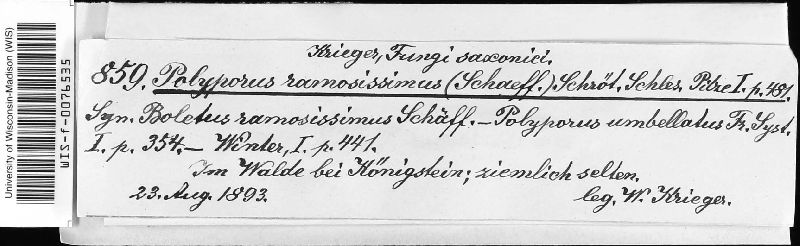 University of Wisconsin-Madison (WIS)
WIS-f-0076535
Krieger, Fungi saxonici.
859. Polyporus ramosissimus (Schaeff.) Schröt. Schles. Pilze I. p. 481.
Syn. Boletus ramosissimus Schäff. – Polyporus umbellatus Fr. Syst.
I. p. 354. – Winter, I. p. 441.
Im Walde bei Königstein; ziemlich selten.
23. Aug. 1893. leg. W. Krieger.